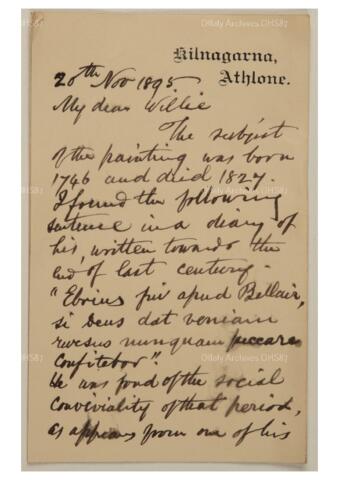 Offaly Archives OHS87
Kilnagarna,
Athlone.
20th Nov 1895.
My dear Willie
The subject
of the painting was born
1746 and died 1827.
I found the following
sentence in a diary of
his, written towards the
end of last century.
"Ebrius fui apud Bellair,
si Deus dat veniam
rursus nunquam peccare
Confitebor".
He was fond of the social
Conviviality of that period,
as appears from one of his